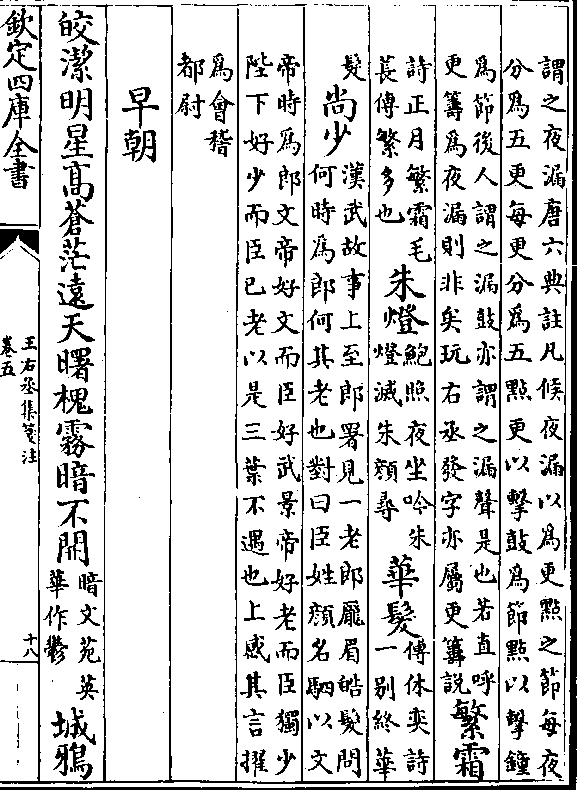 謂之夜漏唐六典註凡候夜漏以為更點之節每夜
分為五更每更分為五點更以擊鼓為節點以擊鐘
為節後人謂之漏鼓亦謂之漏聲是也若直呼
更籌為夜漏則非矣玩右丞發字亦屬更籌說
繁霜
詩正月繁霜毛
萇傳繁多也
朱燈
鮑照夜坐吟朱
燈滅朱顏尋
華髮
傅休奕詩
一别終華
髮
尚少
漢武故事上至郎署見一老郎龎眉皓髮問
何時為郎何其老也對曰臣姓顏名駟以文
帝時為郎文帝好文而臣好武景帝好老而臣獨少
陛下好少而臣已老以是三葉不遇也上感其言擢
為會稽
都尉
早朝
皎潔明星高蒼茫遠天曙槐霧暗不開
暗文苑英
華作鬱
城鴉
欽定四庫全書
王右丞集箋注
卷五
十八